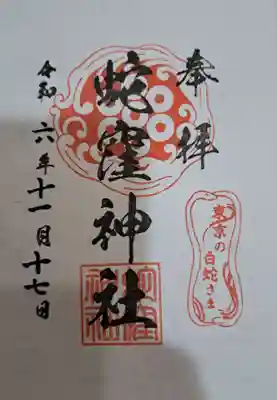 奉拝
蛇窪神社
令和六年十一月十七日
東京の
白蛇さま